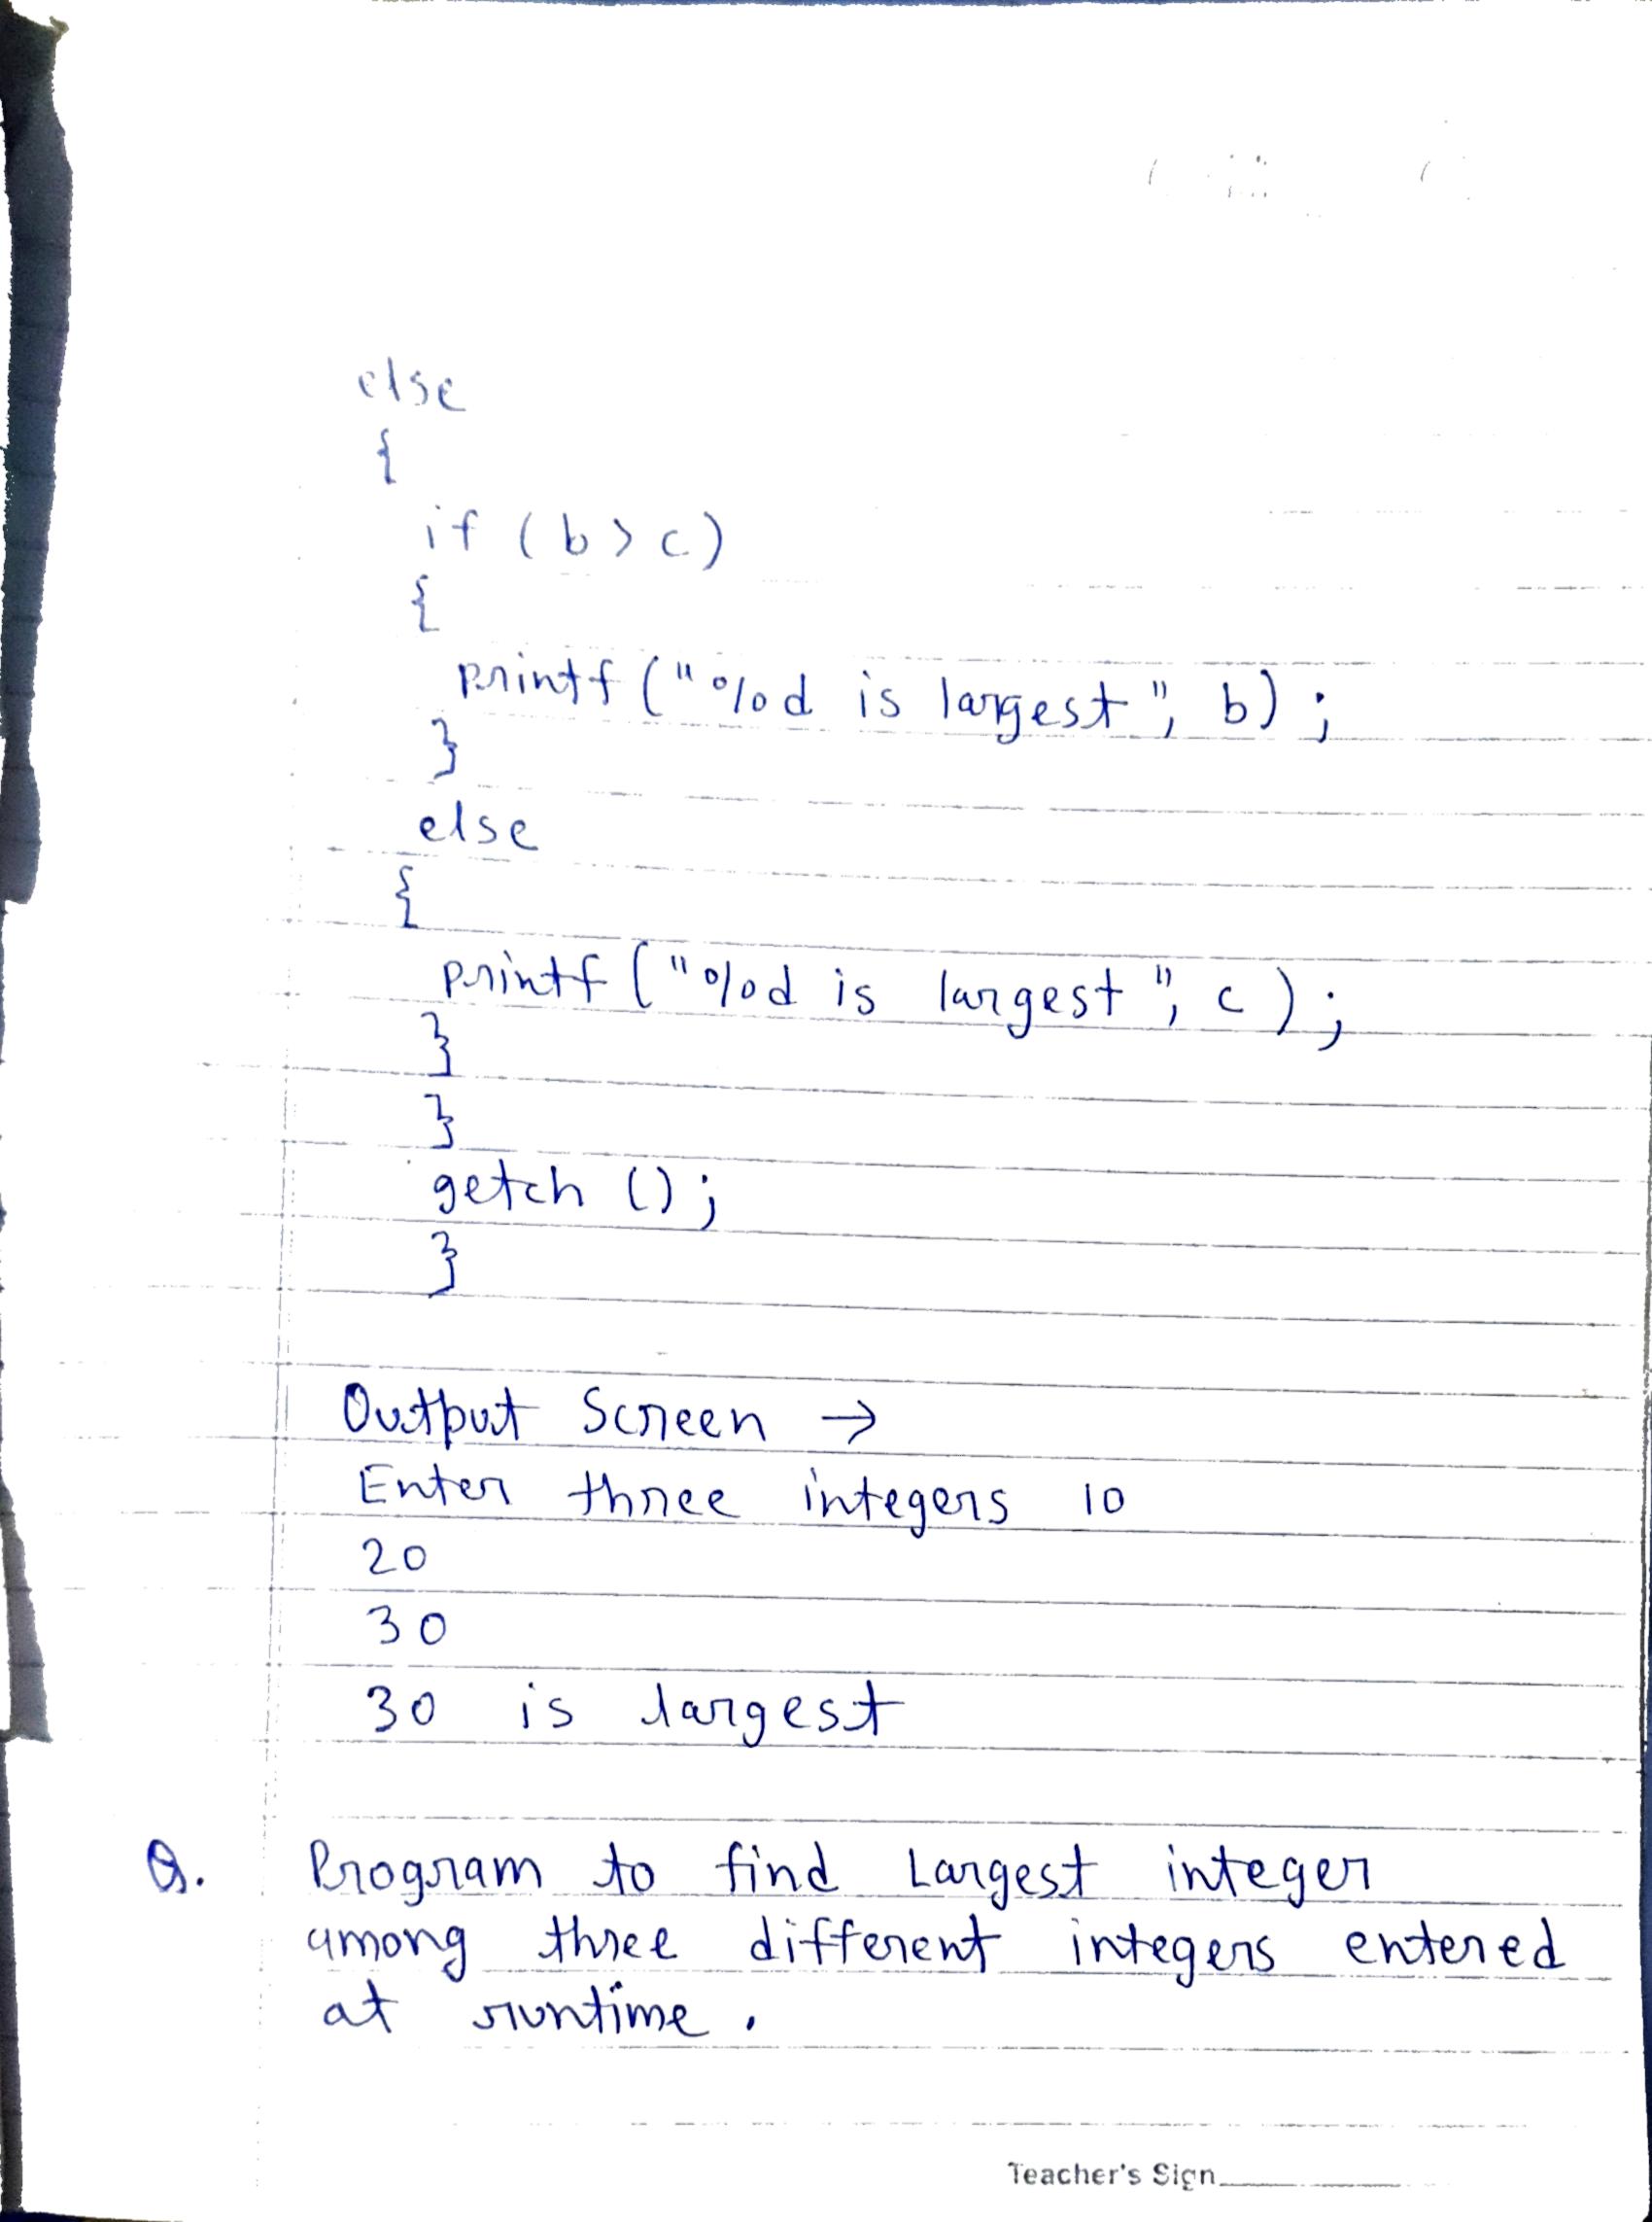 else
{
if (b > c)
{
printf ("%d is largest", b);
}
else
{
printf ("%d is largest", c);
}
}
getch ();
}
Output Screen →
Enter three integers 10
20
30
30 is largest
Q. Program to find Largest integer
among three different integers entered
at runtime.
Teacher's Sign